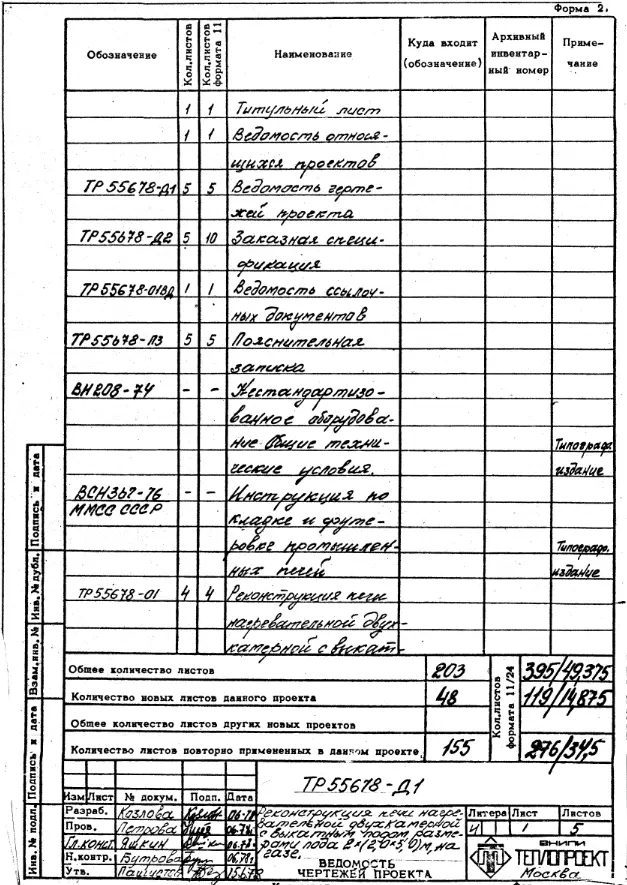 Форма 2.
Обозначение Кол.листов Кол.листов формата 11 Наименование Куда входит (обозначение) Архивный инвентарный номер Примечание
1 1 Титульный лист
1 1 Ведомость относя-
щихся проектов
ТР55678-Д1 5 5 Ведомость черте-
жей проекта
ТР55678-Д2 5 10 Заказная специ-
фикация
ТР55678-01ВД 1 1 Ведомость ссылоч-
ных документов
ТР55678-ПЗ 5 5 Пояснительная
записка
ВН208-74 - - Нестандартизо-
ванное оборудова-
ние. Общие техни- Типограф.
ческие условия. издание
ВСН367-76 - - Инструкция по
ММСС СССР кладке и футе-
ровке промышлен- Типограф.
ных печей издание
ТР55678-01 4 4 Реконструкция печи
нагревательной двух-
камерной с выкат-
Общее количество листов 203 Кол.листов формата 11/24 395/49,375
Количество новых листов данного проекта 48 119/14,875
Общее количество листов других новых проектов
Количество листов повторно примененных в данном проекте. 155 276/34,5
Инв. № подл. Подпись и дата Взам.инв. № Инв. № дубл. Подпись и дата
ТР55678-Д1
Изм Лист № докум. Подп. Дата
Разраб. Козлова 06.78
Пров. Петрова 06.78
Гл.конст. Яшкин 06.78
Н.контр. Бутрова 06.78
Утв. 15.6.78
Реконструкция печи нагре-
вательной двухкамерной
с выкатным подом разме-
рами пода 2×(2,0×5,0)м, на
газе.
ВЕДОМОСТЬ
ЧЕРТЕЖЕЙ ПРОЕКТА
Литера Лист Листов
И 1 5
ВНИПИ
ТЕПЛОПРОЕКТ
Москва